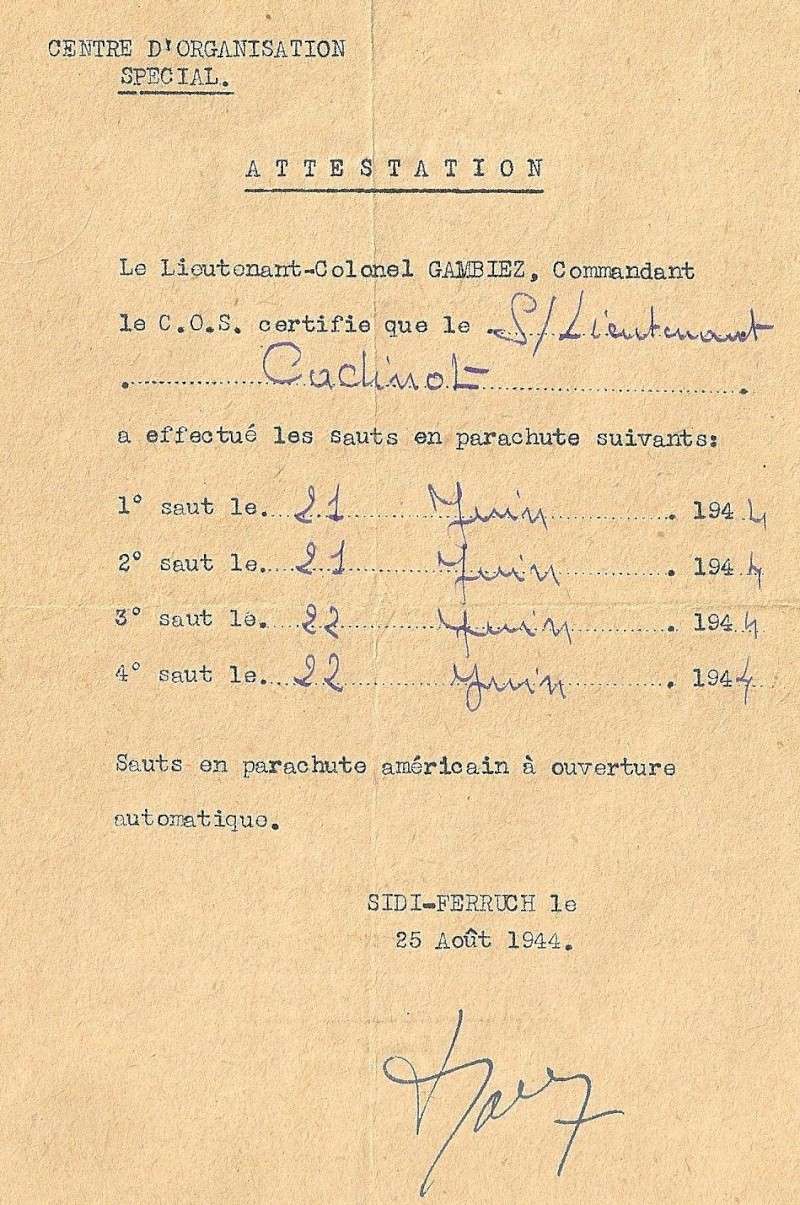 CENTRE D'ORGANISATION
SPECIAL.
ATTESTATION
Le Lieutenant-Colonel GAMBIEZ, Commandant
le C.O.S. certifie que le S/Lieutenant
Cadinot
a effectué les sauts en parachute suivants:
1° saut le. 21 Juin . 1944
2° saut le. 21 Juin . 1944
3° saut le. 22 Juin . 1944
4° saut le. 22 Juin . 1944
Sauts en parachute américain à ouverture
automatique.
SIDI-FERRUCH le
25 Août 1944.